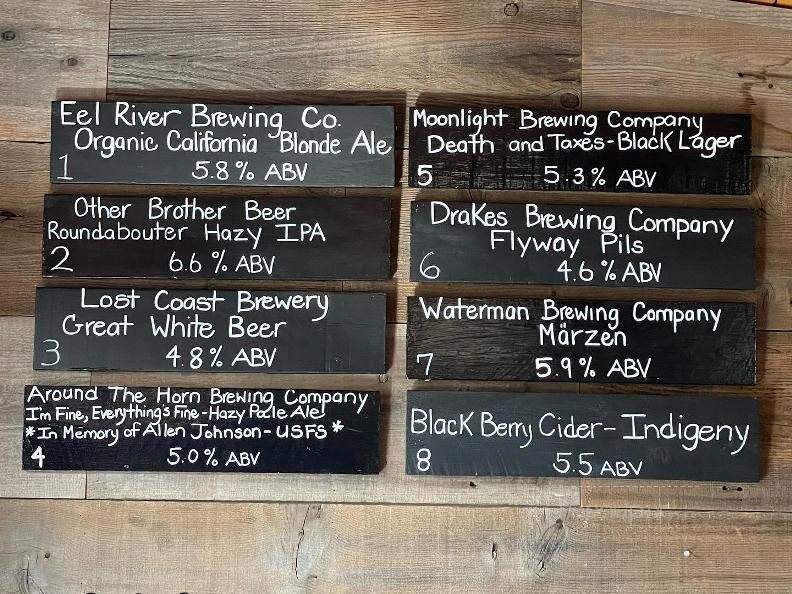 Eel River Brewing Co.
Organic California Blonde Ale
1 5.8% ABV
Other Brother Beer
Roundabouter Hazy IPA
2 6.6% ABV
Lost Coast Brewery
Great White Beer
3 4.8% ABV
Around The Horn Brewing Company
I'm Fine, Everything's Fine-Hazy Pale Ale
*In Memory of Allen Johnson-USFS*
4 5.0% ABV
Moonlight Brewing Company
Death and Taxes-Black Lager
5 5.3% ABV
Drakes Brewing Company
Flyway Pils
6 4.6% ABV
Waterman Brewing Company
Märzen
7 5.9% ABV
Black Berry Cider-Indigeny
8 5.5 ABV